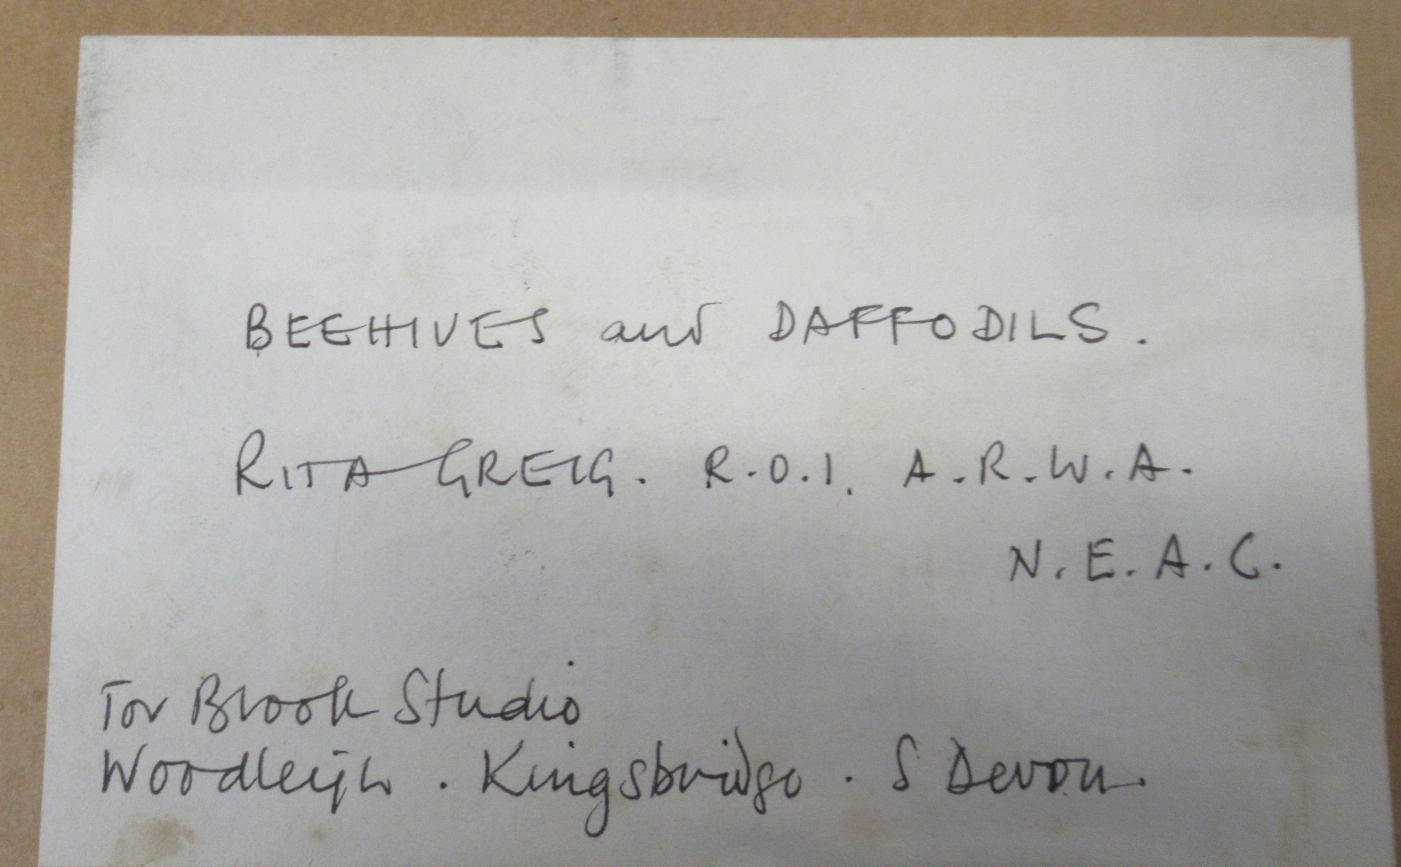 BEEHIVES and DAFFODILS.
RITA GREIG. R.O.I. A.R.W.A.
N.E.A.C.
Tor Brook Studio
Woodleigh . Kingsbridge . S Devon.